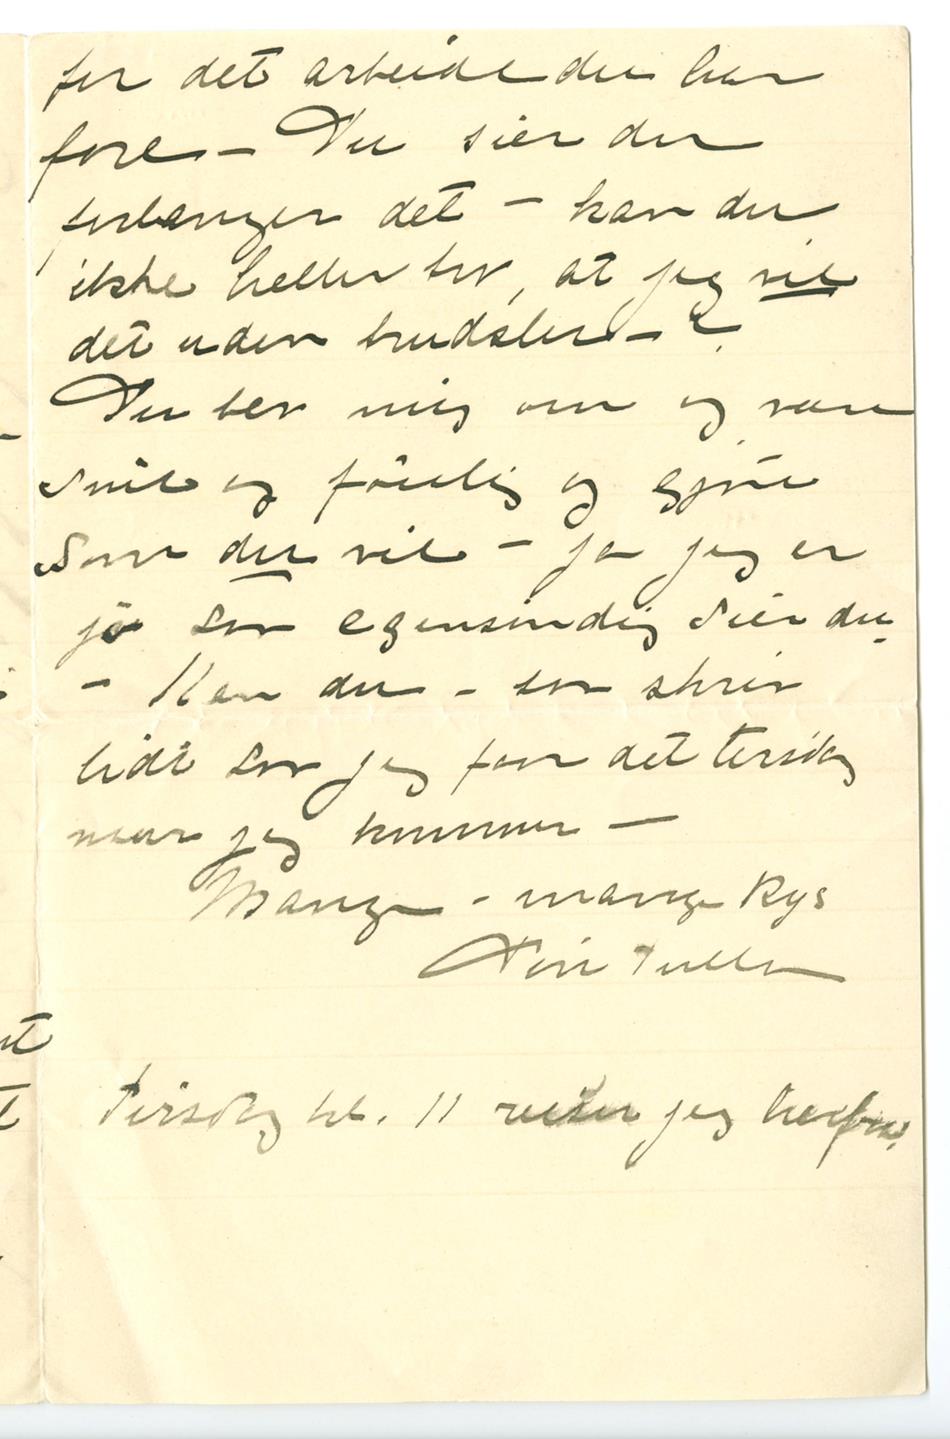 for det arbeide du har
fore – Du sier du
forlanger det – kan du
ikke heller tro, at jeg vil
det uden trudsler – ?
Du ber mig om og være
snil og føielig og gjøre
som du vil – ja jeg er
jo saa egensindig sier du
– Kan du – saa skriv
lidt saa jeg faar det tirsdag
naar jeg kommer –
Mange – mange Kys
Din Tulla
Tirsdag kl. 11 reiser jeg herfra.